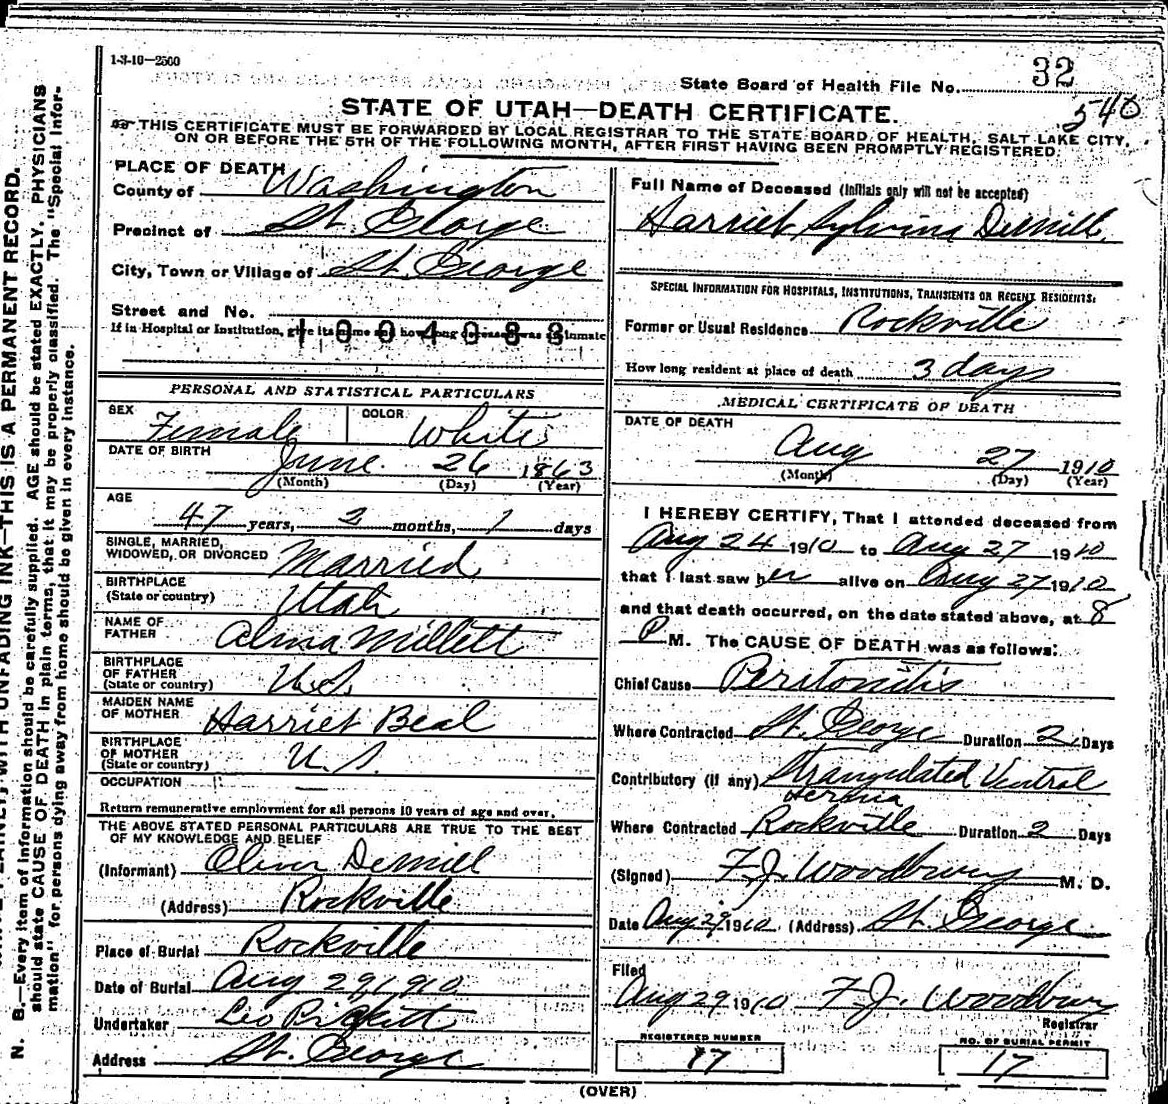 1-3-10—2500
State Board of Health File No. 32
540
STATE OF UTAH—DEATH CERTIFICATE.
THIS CERTIFICATE MUST BE FORWARDED BY LOCAL REGISTRAR TO THE STATE BOARD OF HEALTH, SALT LAKE CITY,
ON OR BEFORE THE 5TH OF THE FOLLOWING MONTH, AFTER FIRST HAVING BEEN PROMPTLY REGISTERED.
PLACE OF DEATH
County of Washington
Precinct of St. George
City, Town or Village of St. George
Street and No.
If in Hospital or Institution, give its name and how long deceased was an inmate
1004088
PERSONAL AND STATISTICAL PARTICULARS
SEX Female COLOR White
DATE OF BIRTH June 26 1863
(Month) (Day) (Year)
AGE
47 years, 2 months, 1 days
SINGLE, MARRIED,
WIDOWED, OR DIVORCED Married
BIRTHPLACE
(State or country) Utah
NAME OF
FATHER Alma Millett
BIRTHPLACE
OF FATHER
(State or country) U.S.
MAIDEN NAME
OF MOTHER Harriet Beal
BIRTHPLACE
OF MOTHER
(State or country) U.S.
OCCUPATION
Return remunerative employment for all persons 10 years of age and over.
THE ABOVE STATED PERSONAL PARTICULARS ARE TRUE TO THE BEST
OF MY KNOWLEDGE AND BELIEF
(Informant) Oliver Demill
(Address) Rockville
Place of Burial Rockville
Date of Burial Aug 29, 1910
Undertaker Leo
Address St. George
Full Name of Deceased (Initials only will not be accepted)
Harriet Sylvina DeMille
SPECIAL INFORMATION FOR HOSPITALS, INSTITUTIONS, TRANSIENTS OR RECENT RESIDENTS:
Former or Usual Residence Rockville
How long resident at place of death 3 days
MEDICAL CERTIFICATE OF DEATH
DATE OF DEATH
Aug 27 1910
(Month) (Day) (Year)
I HEREBY CERTIFY, That I attended deceased from
Aug 24 1910 to Aug 27 1910
that I last saw her alive on Aug 27 1910
and that death occurred, on the date stated above, at 8
P M. The CAUSE OF DEATH was as follows:
Chief Cause Peritonitis
Where Contracted St. George Duration 2 Days
Contributory (if any) Strangulated Ventral
Hernia
Where Contracted Rockville Duration 2 Days
(Signed) F.J. Woodbury M. D.
Date Aug 29, 1910 (Address) St. George
Filed
Aug 29 1910 F.J. Woodbury
Registrar
REGISTERED NUMBER
17
NO. OF BURIAL PERMIT
17
(OVER)
UNFADING INK—THIS IS A PERMANENT RECORD.
N. B.—Every item of information should be carefully supplied. AGE should be stated EXACTLY. PHYSICIANS
should state CAUSE OF DEATH in plain terms, that it may be properly classified. The "Special Infor-
mation" for persons dying away from home should be given in every instance.